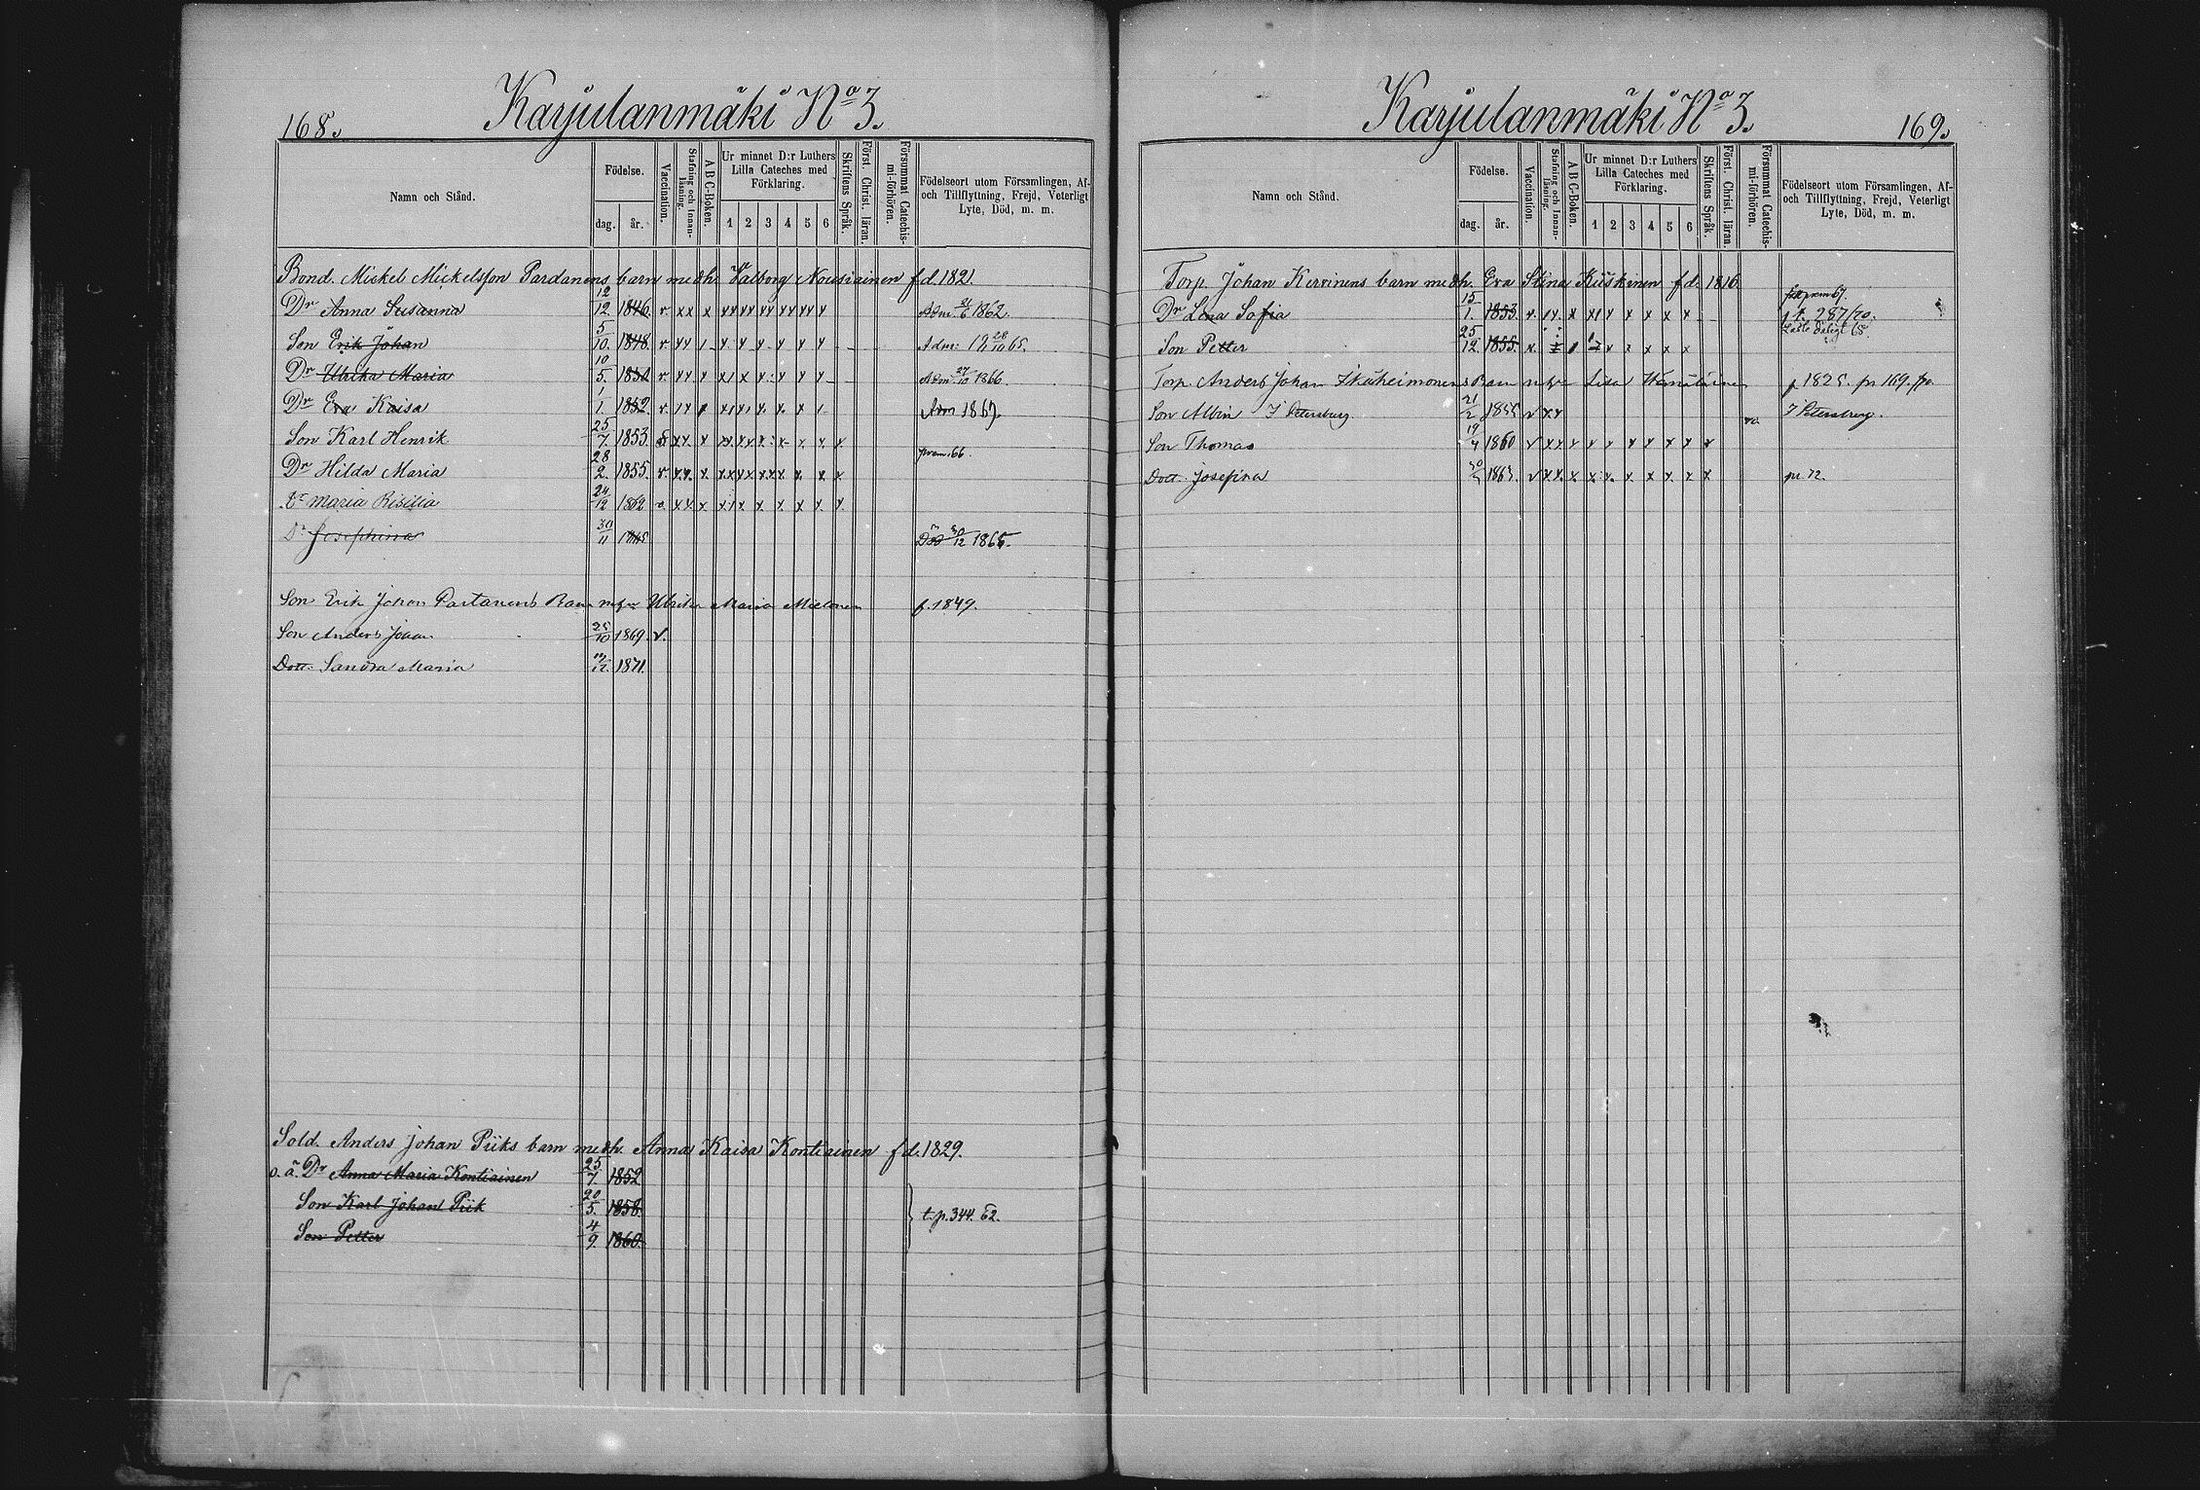 168.
Karjulanmäki No 3.
Namn och Stånd.
Födelse.
dag.
år.
Vaccination.
Stafning och Innan-läsning.
A B C-Boken.
Ur minnet D:r Luthers
Lilla Cateches med
Förklaring.
1 2 3 4 5 6
Skriftens Språk.
Först. Christ. läran.
Försummat Catechis-mi-förhören.
Födelseort utom Församlingen, Af-
och Tillflyttning, Frejd, Veterligt
Lyte, Död, m. m.
Bond. Mickel Mickelsson Pardanens barn medh. Valborg Nousiainen f d. 1821.
Dr Anna Susanna 12/12 1846. v. x x x x x x x x x x x x x x Adm. 1862.
Son Erik Johan 5/10. 1848. v. Adm: 19 28/10 65.
Dr Ulrika Maria 10/5. 1850 v. Adm. 27/10 1866.
Dr Eva Kaisa 1/1. 1852. v. Adm 1867.
Son Karl Henrik 25/7. 1853.
Dr Hilda Maria 28/2. 1855. v.
Dr Maria Risilia 24/12 1862 v.
Dr Josephina 30/11 1865 Död 1865.
Son Erik Johan Partanens Barn mhu Ulrika Maria f. 1849.
Son Anders Johan 25/10 1869. v.
Dott. Sandra Maria 1871.
Sold. Anders Johan Piiks barn medh. Anna Kaisa Kontiainen f d. 1829.
o. ä. Dr Anna Maria Kontiainen 25/7. 1852
Son Karl Johan Piik 20/5. 1858.
t. p. 344. 62.
Son Petter 4/9. 1860.
Karjulanmäki No 3.
169.
Namn och Stånd.
Födelse.
dag.
år.
Vaccination.
Stafning och Innan-läsning.
A B C-Boken.
Ur minnet D:r Luthers
Lilla Cateches med
Förklaring.
1 2 3 4 5 6
Skriftens Språk.
Först. Christ. läran.
Försummat Catechis-mi-förhören.
Födelseort utom Församlingen, Af-
och Tillflyttning, Frejd, Veterligt
Lyte, Död, m. m.
Torp. Johan Kervinens barn medh. Eva Stina Kiiskinen f d. 1816.
Dr Lena Sofia 15/1. 1853. v. 287/70.
Son Petter 25/12. 1855. v.
Torp. Anders Johan Barn mhu Lisa f 1825. pr 169.
Son Albin I Petersburg 21/2 1855 v I Petersburg.
Son Thomas 19/4 1860 v
Dott. Josefina 1863. v